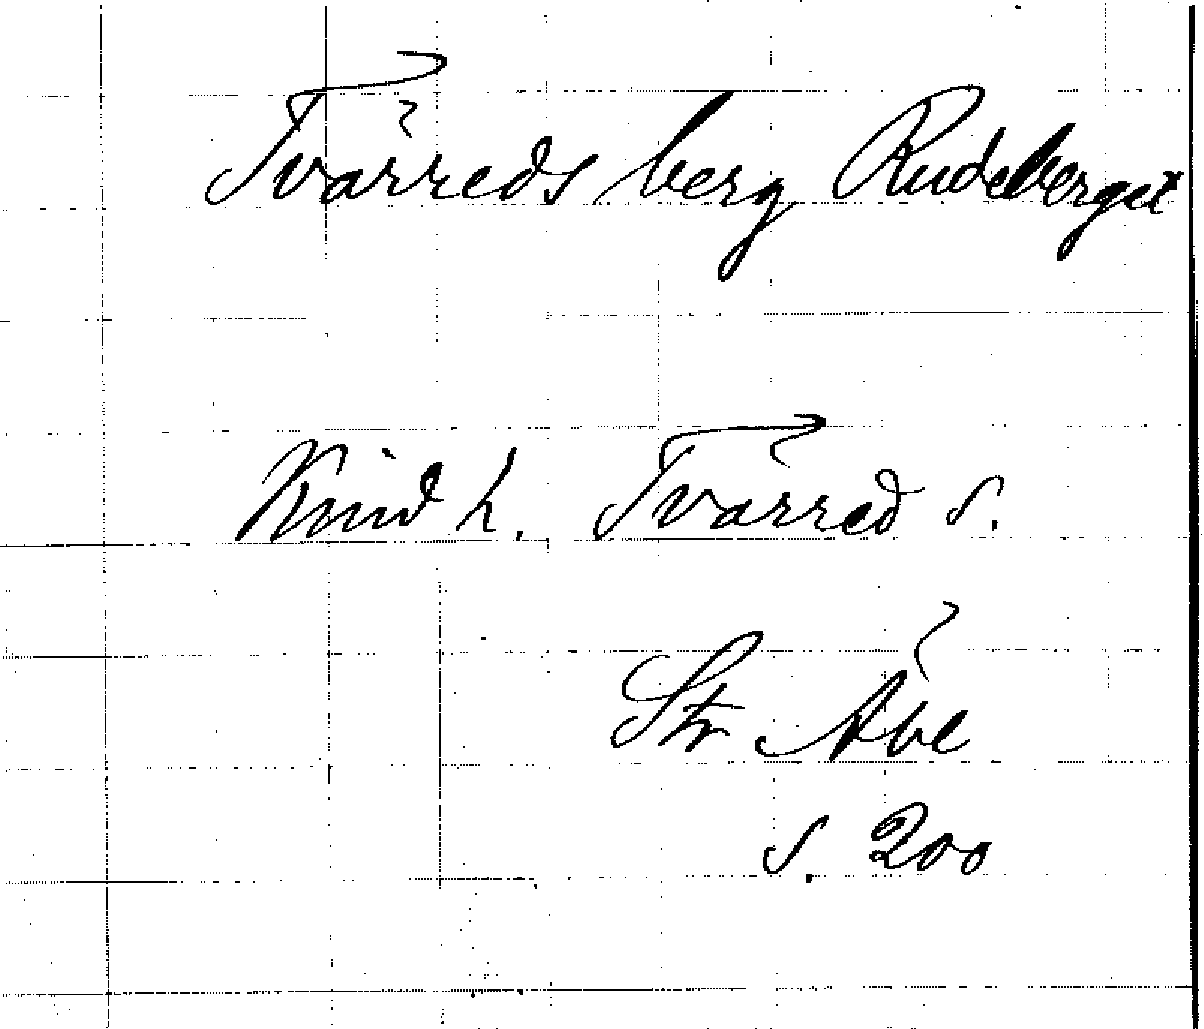 Tvärreds berg Rudeberget
Kind h. Tvärred s.
Str Åbe
s. 200